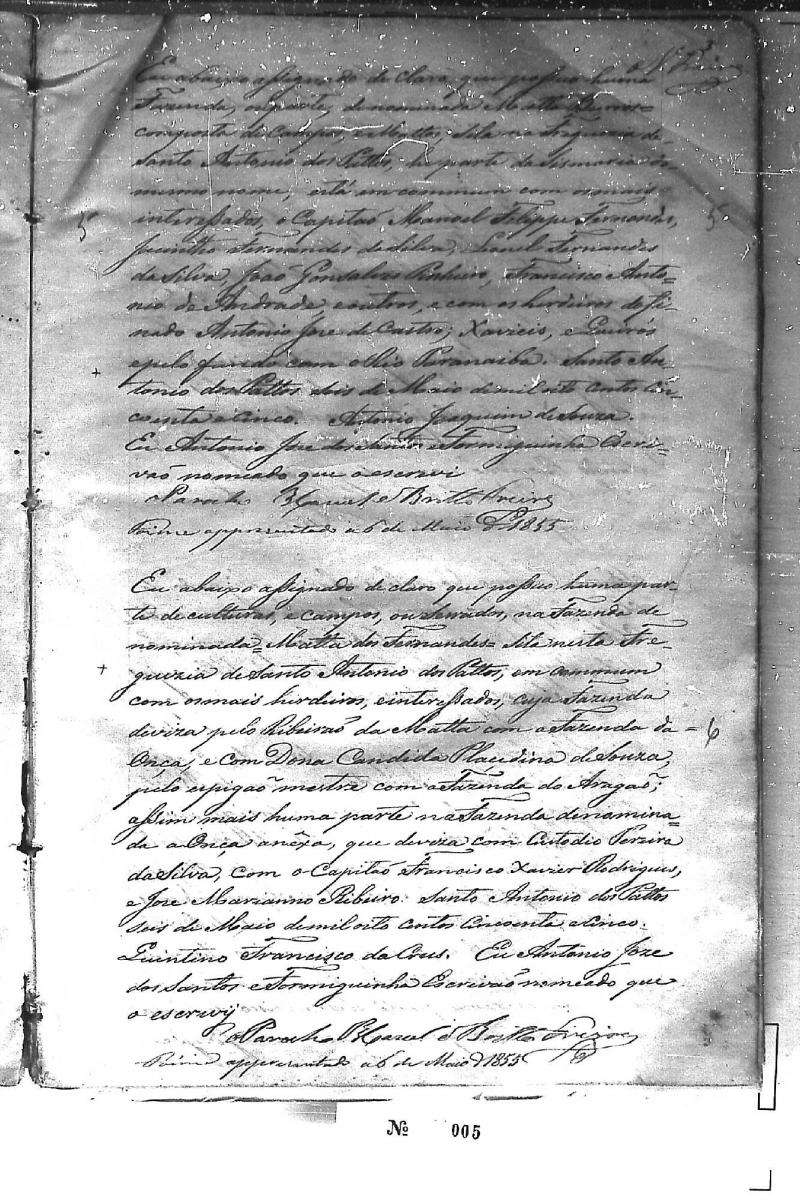 Eu abaixo assignado de claro, que possuo huma
Fazenda, ou parte, denominada Matta
composta de Campos, e Mattos, sita na Freguezia de
Santo Antonio dos Pattos, he parte da Sismaria do
mesmo nome, está em commum com os mais
interessados, o Capitaõ Manoel Felippe Fernandes,
5 Jacintho Fernandes da Silva, Fernandes 5
da Silva, Joaõ Gonsalves Pinheiro, Francisco Anto=
nio de Andrade, e outros, e com os herdeiros do fi-
nado Antonio Jose de Castro; Xavieis, e Queirós
e pelo fundo com o Rio Paranaiba. Santo An-
tonio dos Pattos seis de Maio de mil oito centos cin-
coenta e cinco. Antonio Joaquim de Souza.
Eu Antonio Jose dos Santos e Formiguinha Escri-
vaõ nomeado que o escrevi
o Parocho Mancel de Britto Freire
Foi me appresentado a 6 de Maio de 1855
Eu abaixo assignado de claro que possuo huma par-
te de culturas, e campos, ou Serrados, na Fazenda de
nominada = Matta dos Fernandes = sita nesta Fre-
guezia de Santo Antonio dos Pattos, em commum
com os mais herdeiros, e interessados, cuja Fazenda
deviza pelo Ribeiraõ da Matta com a Fazenda da = 6
Onça, e com Dona Candida Placedina de Souza,
pelo espigaõ mestre com a Fazenda do Aragaõ;
assim mais huma parte na Fazenda denomina-
da a Onça anêxa, que deviza com Custodio Pereira
da Silva, com o Capitaõ Francisco Xavier Rodrigues,
e Joze Marianno Ribeiro. Santo Antonio dos Pattos
seis de Maio de mil oito centos cincoenta e cinco.
Quintino Francisco da Crus. Eu Antonio Joze
dos Santos e Formiguinha Escrivaõ nomeado que
o escrevy
o Parocho Mancel de Britto Freire
Foi me appresentado a 6 de Maio de 1855
Nº 005